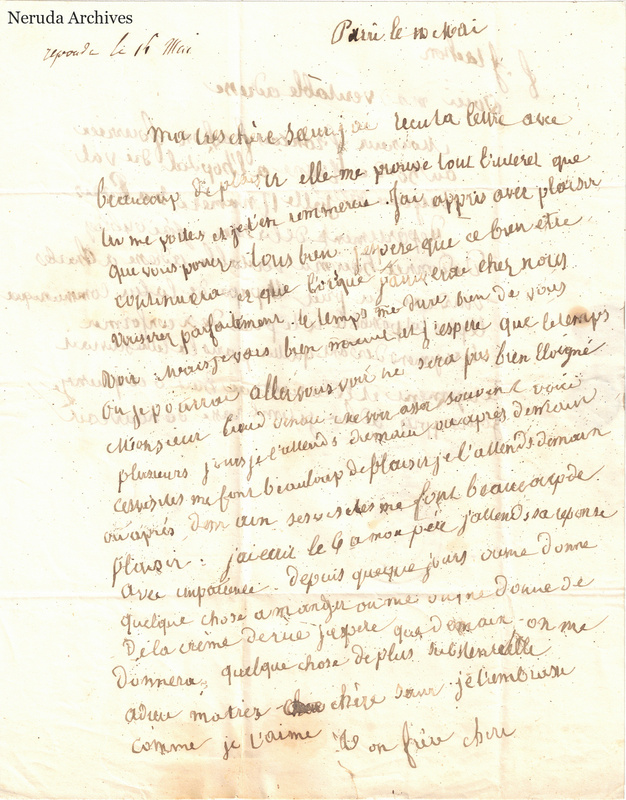 Neruda Archives
reponda le 16 Mai
Paris le 10 Mai
Ma tres chère Sœur j'ai recu ta lettre avec
beaucoup de plaisir elle me prouve tout l'interet que
tu me portes et je t'en remmercie. J'ai appris avec plaisir
que vous tous bien j'espere que ce bien etre
continuera et que lorsque j'arriverai chez nous
parfaitement. le temps me dure bien de vous
voir Mais je vais bien et j'espere que le temps
ou je pourrai aller vous voir ne sera pas bien Eloigné
Monsieur me voir assez souvent voici
plusieurs jours je l'attends demain ou après demain
ces visites me font beaucoup de plaisir je l'attends demain
ou après demain ses visites me font beaucoup de
plaisir. j'ai ecrit le 6 a mon père j'attends sa reponse
avec impatience. depuis quelque jours on me donne
quelque chose a manger on me donne de
De la crème de riz j'espere que demain on me
donnera quelque chose de plus substentielle
adieu ma tres chère sœur je t'embrasse
comme je t'aime Ton frère cheri